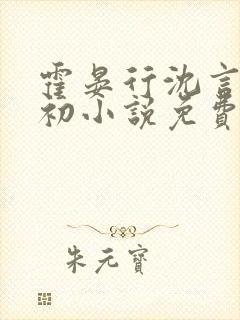 霍晏行沈言
初小説免費
朱元寶